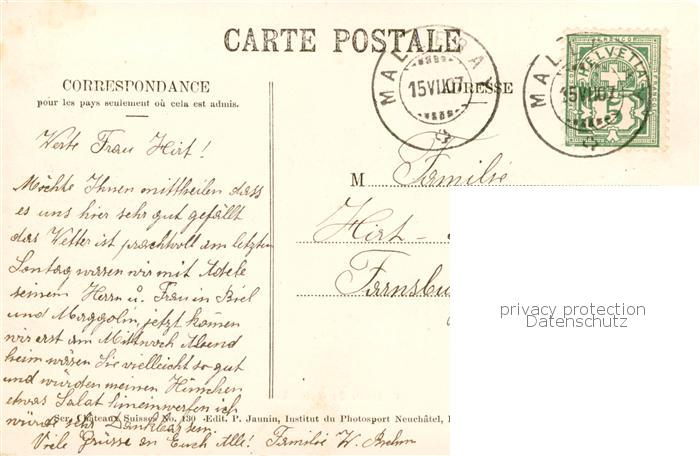 CARTE POSTALE
CORRESPONDANCE
pour les pays seulement où cela est admis.
ADRESSE
MALLERAY
15 VII 07
MALLERAY
15 VII 07
HELVETIA
5
Werte Frau Hirt!
Möchte Ihnen mittheilen dass
es uns hier sehr gut gefällt
das Wetter ist prachtvoll am letzten
Sontag waren wir mit Adele
seinem Herrn u. Frau in Biel
und Maggolin, jetzt kömen
wir erst am Mittwoch Abend
heim wären Sie vielleicht so gut
und würden meinen Hünchen
etwas Salat hineinwerfen ich
würde sehr Dankbar sein.
Viele Grüsse an Euch Alle! Familie W. Brehm
M Familie
Hirt -
Farnsbu
Ser. Châteaux Suisses No. 130 Edit. P. Jaunin, Institut du Photosport Neuchâtel,
privacy protection
Datenschutz